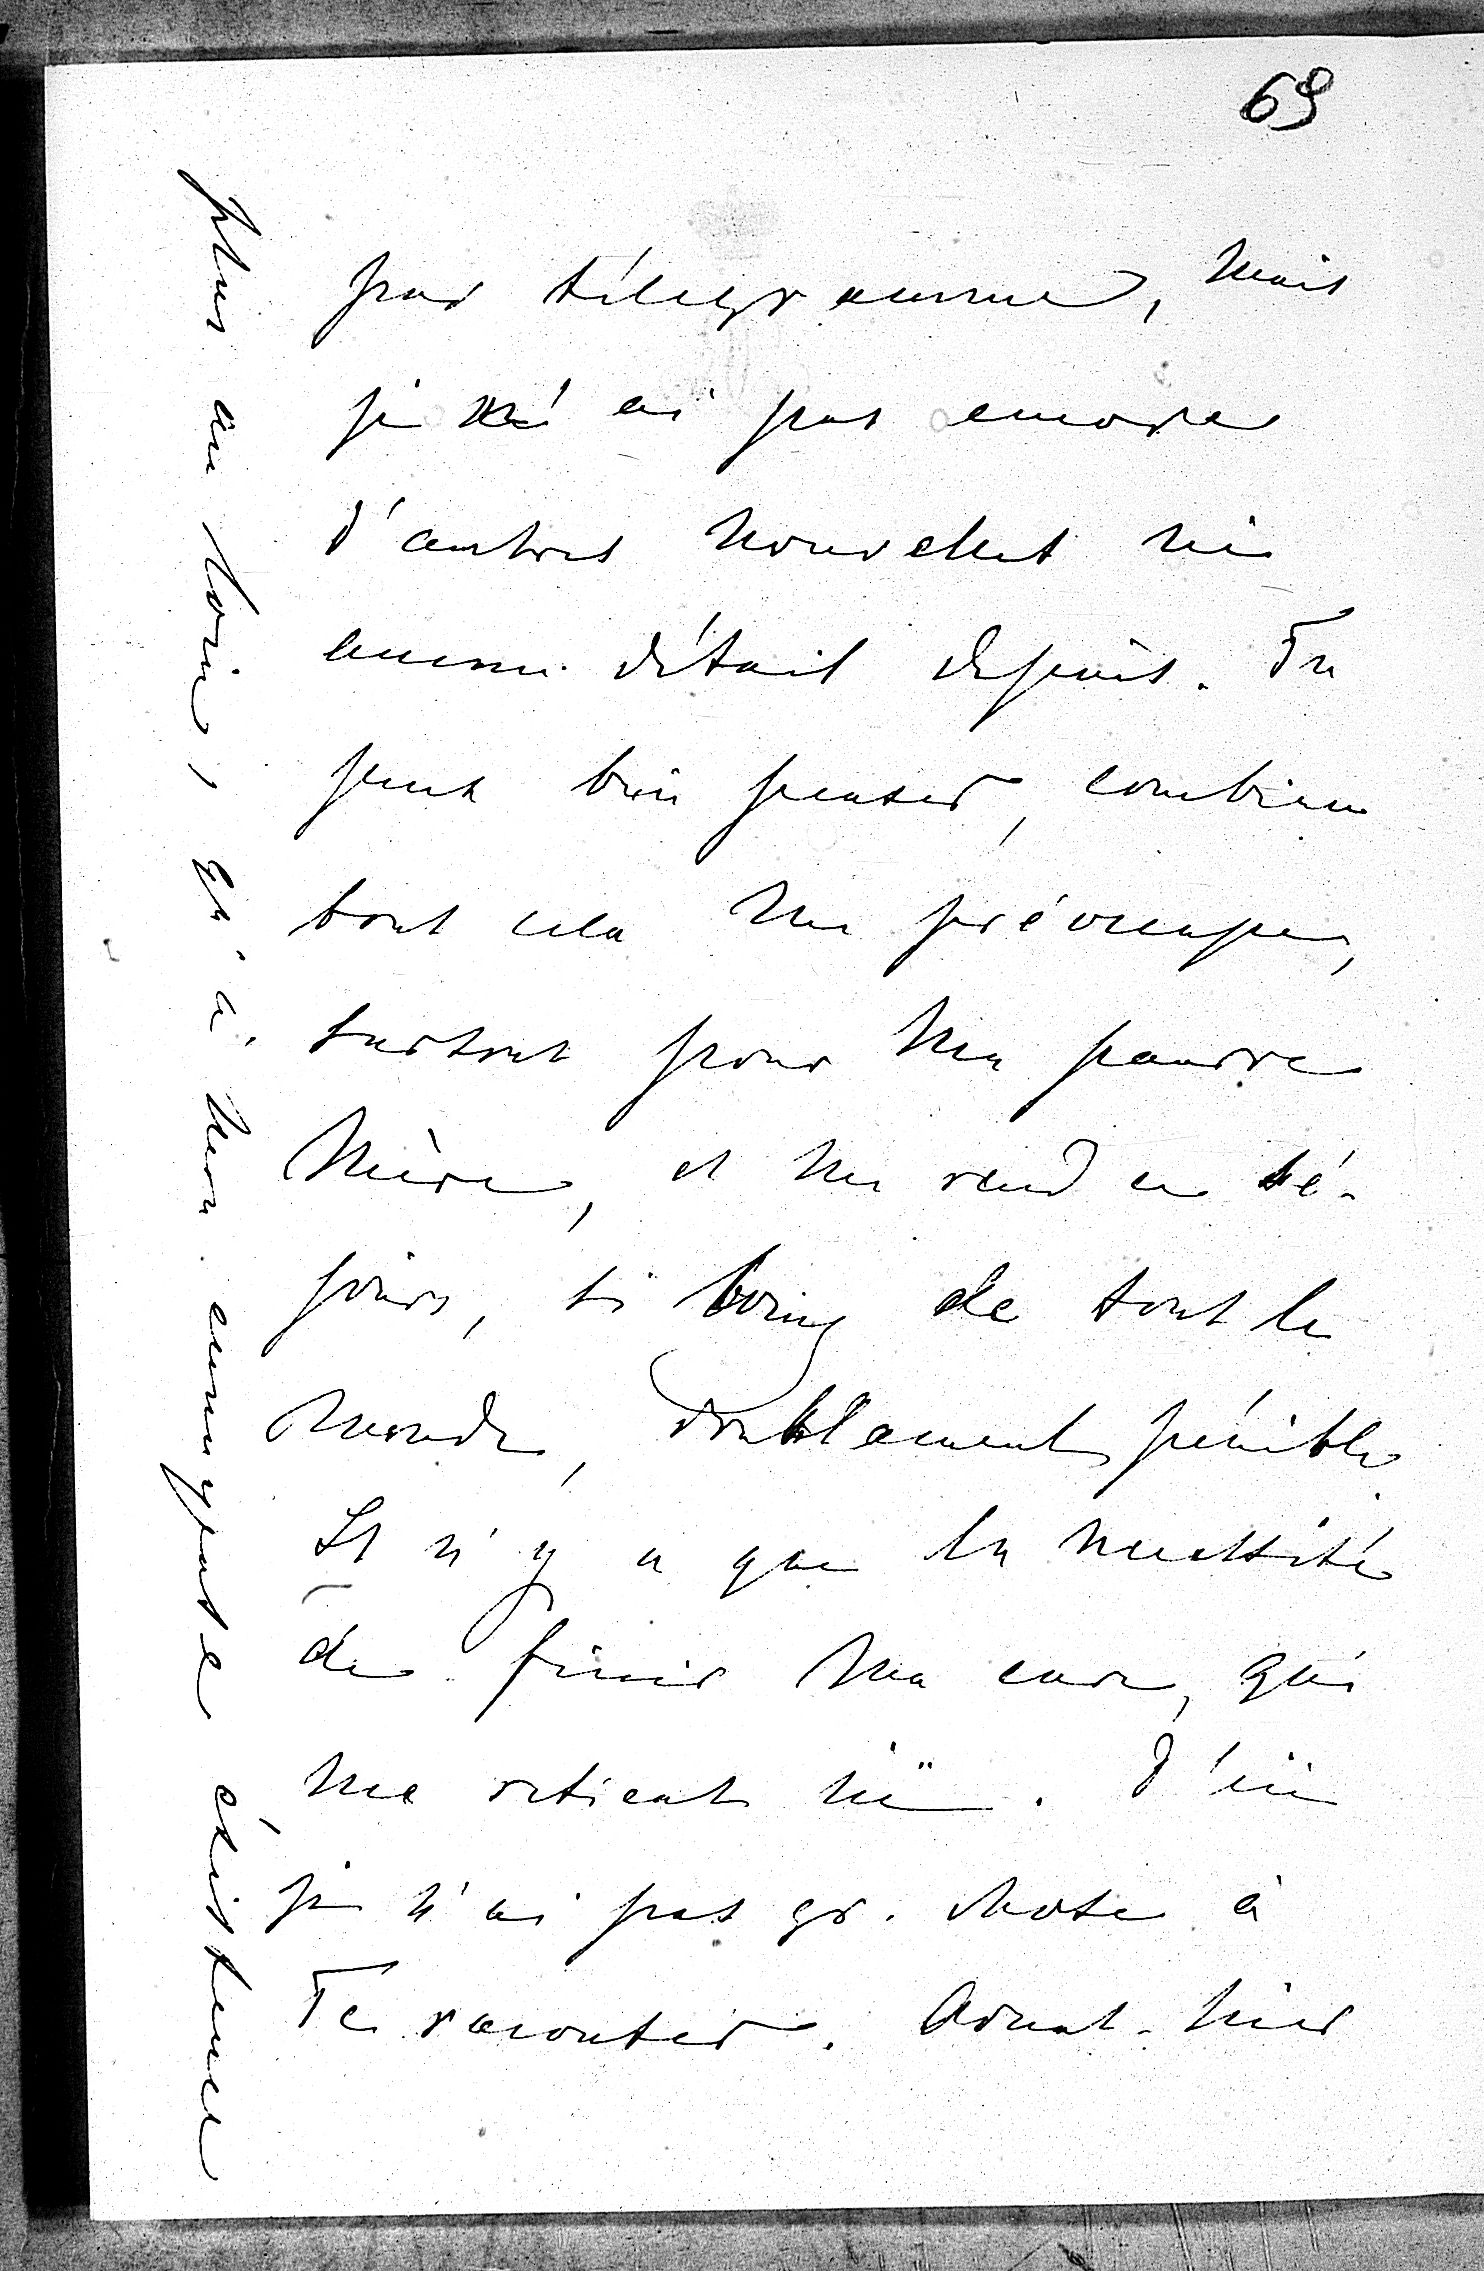 69
par télegramme, mais
je n'ai pas encore
d'autres nouvelles ni
aucun détail depuis. Tu
peux bien penser, combien
tout cela me préoccupe,
surtout pour ma pauvre
Mère, et me rend ce sé-
jour, si loing de tout le
monde, doublement pénible.
Il n'y a que la necessité
de finir ma cure, qui
me retient ici. D'ici
je n'ai pas gr. chose à
Te raconter. Avant-hier
plus au loin, qu'à mon ennuyeuse existence